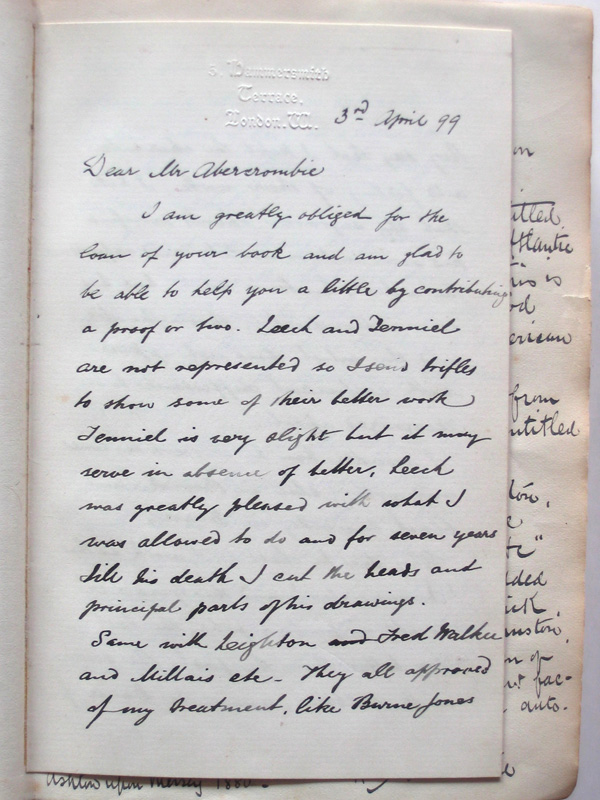 5, Hammersmith
Terrace,
London. W.
3rd April 99
Dear Mr Abercrombie
I am greatly obliged for the
loan of your book and am glad to
be able to help you a little by contributing
a proof or two. Leech and Tenniel
are not represented so I send trifles
to show some of their better work
Tenniel is very slight but it may
serve in absence of better. Leech
was greatly pleased with what I
was allowed to do and for seven years
till his death I cut the heads and
principal parts of his drawings.
Same with Leighton and Fred Walker
and Millais etc - They all approved
of my treatment, like Burne Jones
on
titled
Atlantic
is is
erican
from
ntitled
ton,
dded
fac-
auto.
Ashton upon Mersey